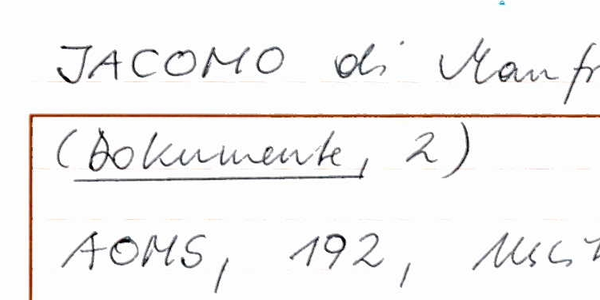 JACOMO di Manfr
(Dokumente, 2)
AOMS, 192,